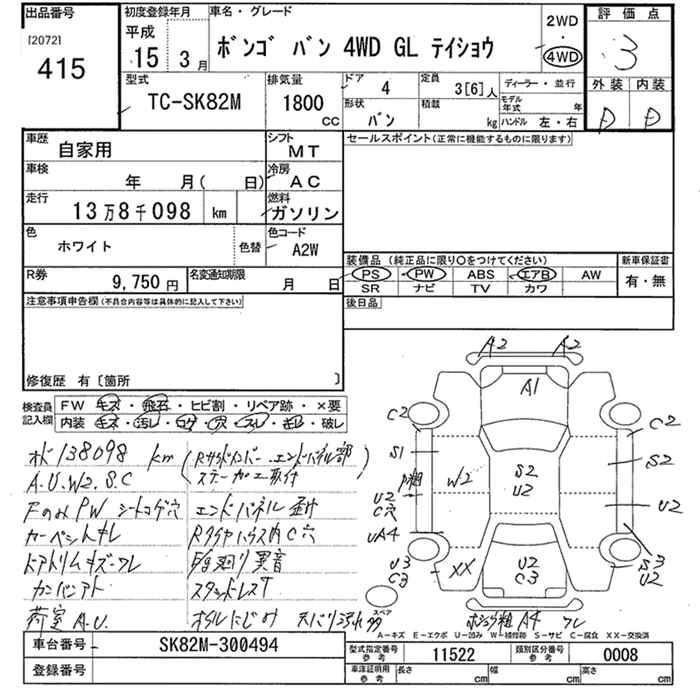 出品番号
[2072]
415
初度登録年月
平成
15年 3月
車名・グレード
ボンゴ バン 4WD GL テイショウ
2WD
・
4WD
評価点
3
外装 内装
D D
型式
TC-SK82M
排気量
1800
CC
ドア
4
定員
3[6]人
ディーラー・並行
形状
バン
積載
kg
モデル年式 年
ハンドル 左・右
車歴
自家用
シフト
MT
車検
年 月( 日)
冷房
AC
走行
13万8千098 km
燃料
ガソリン
色
ホワイト
色替
色コード
A2W
R券
9,750円
名変通知期限
月 日
セールスポイント(正常に機能するものに限ります)
装備品 (純正品に限り○をつけてください)
PS PW ABS エアB AW
SR ナビ TV カワ
新車保証書
有・無
後日品
注意事項申告欄(不具合内容等は具体的に記入して下さい)
修復歴 有〔箇所 〕
検査員
記入欄
FW キズ・飛石・ヒビ割・リペア跡・×要
内装 キズ・汚レ・コゲ・穴・スレ・キレ・破レ
138098 km
A.U.W2.S.C
Fのみ PW シートコゲ穴
カーペットキレ
ドアトリムキズ・ワレ
荷室 A.U.
ステー加工取付
エンドパネル
Rタイヤハウス内C穴
異音
スタッドレスT
A2 A2
A1
C2 C2
S1
S2
W2
S2
U2
U2
C穴
U2
UA4
U3
C3
XX
U2
C3
S3
U2
A4 ワレ
スペア
A-キズ E-エクボ U-凹み W-補修跡 S-サビ C-腐食 XX-交換済
車台番号
SK82M-300494
登録番号
型式指定番号
参考
11522
類別区分番号
参考
0008
車庫証明用
参考
長さ cm
幅 cm
高さ cm